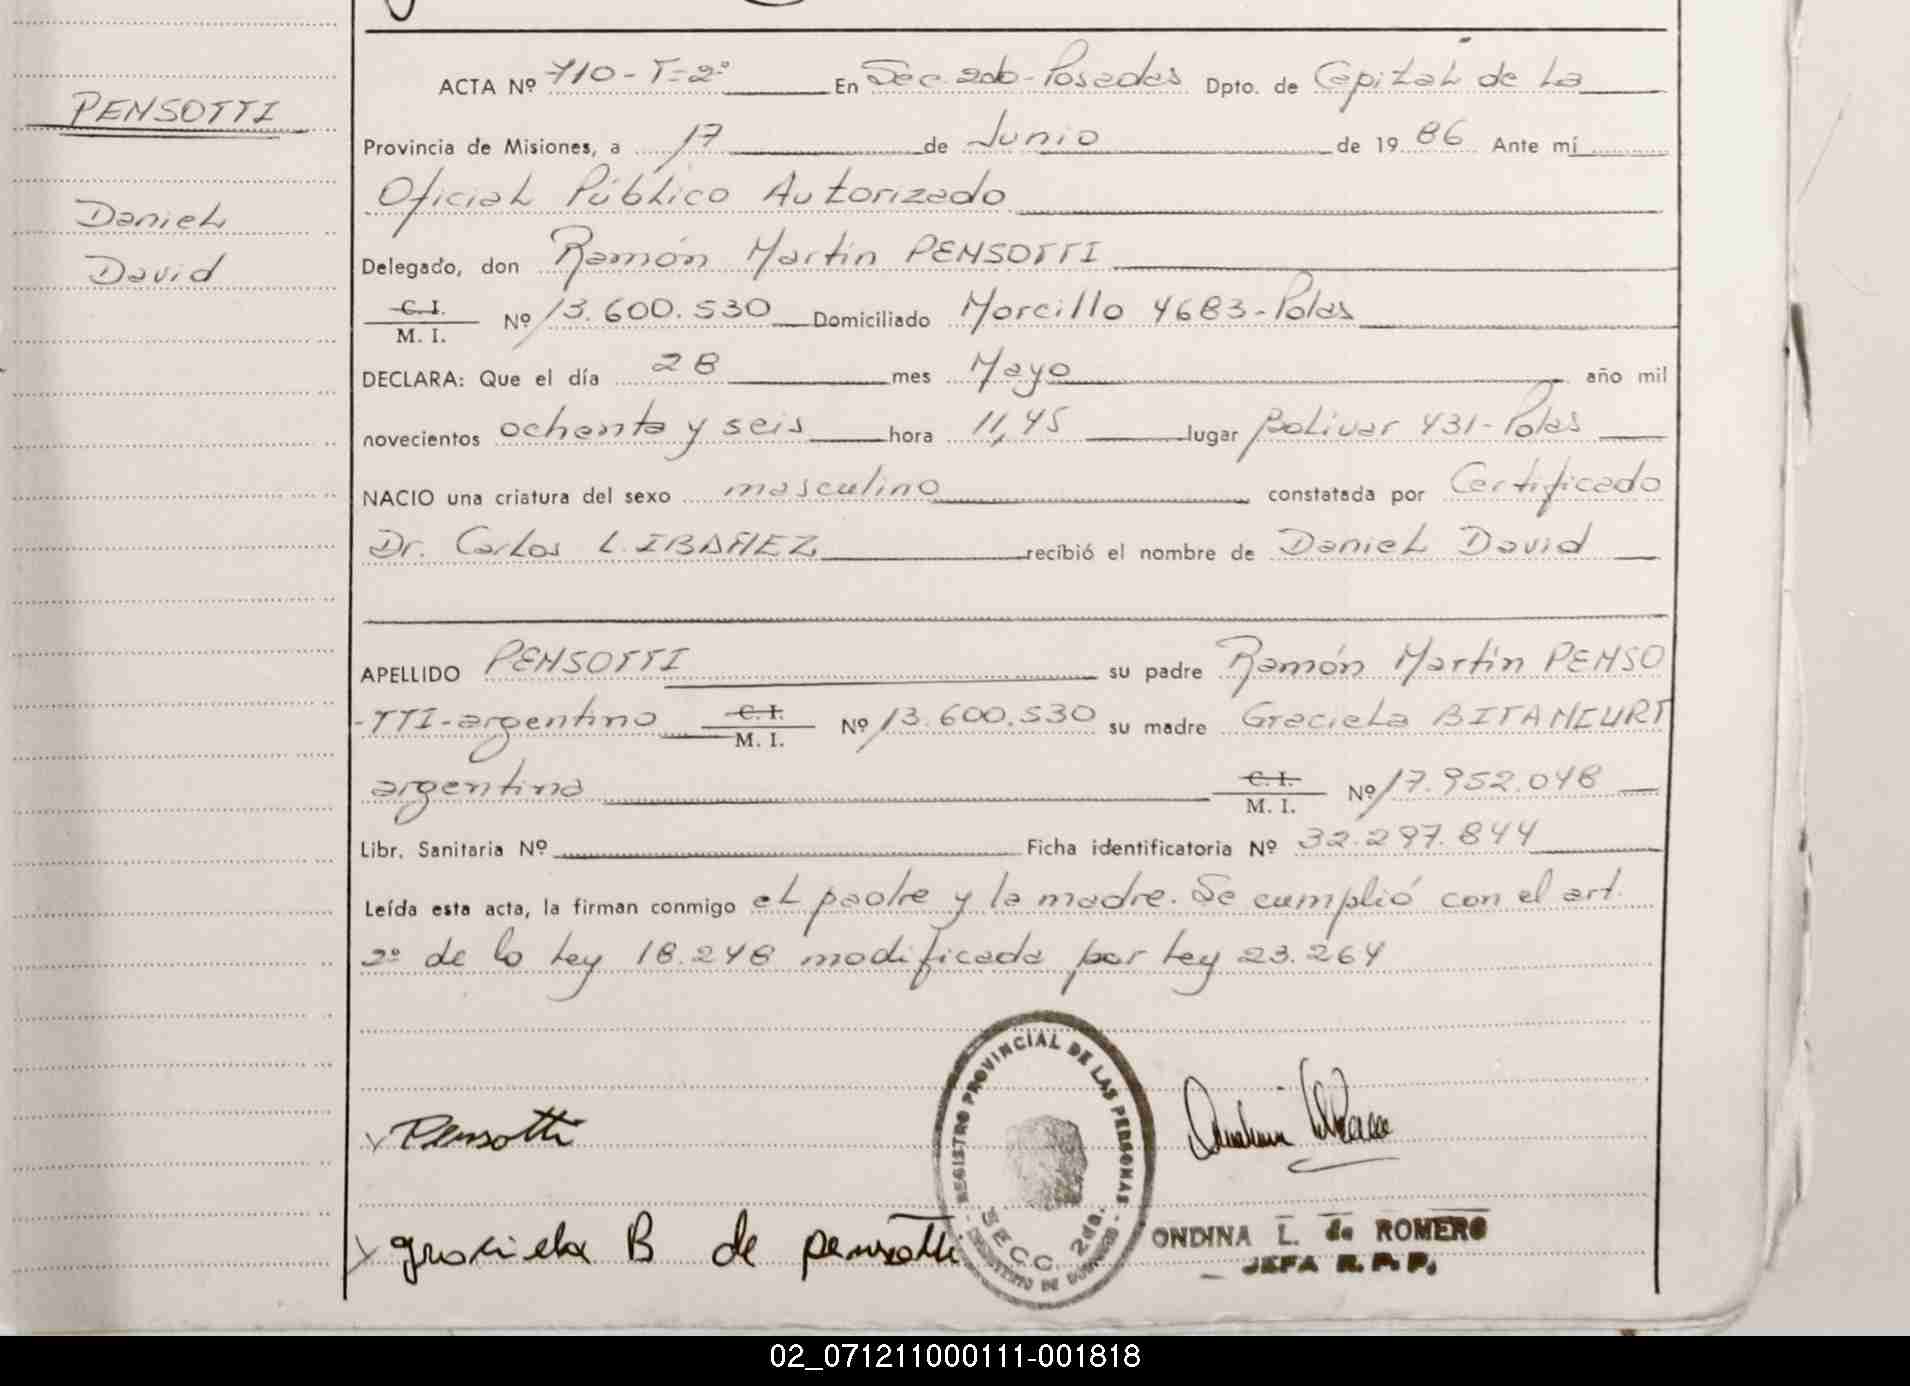 PENSOTTI
Daniel
David
ACTA Nº 710-T=2º En Sec. 2da-Posadas Dpto. de Capital de La
Provincia de Misiones, a 17 de Junio de 1986 Ante mí
Oficial Público Autorizado
Delegado, don Ramón Martín PENSOTTI
C. I.
M. I. Nº 13.600.530 Domiciliado Morcillo 4683-Pdas
DECLARA: Que el día 28 mes Mayo año mil
novecientos ochenta y seis hora 11,45 lugar Bolivar 431-Pdas
NACIO una criatura del sexo masculino constatada por Certificado
Dr. Carlos L. IBAÑEZ recibió el nombre de Daniel David
APELLIDO PENSOTTI su padre Ramón Martín PENSO
-TTI-argentino C. I. M. I. Nº 13.600.530 su madre Graciela BITANCURT
argentina C. I. M. I. Nº 17.952.048
Libr. Sanitaria Nº Ficha identificatoria Nº 32.297.844
Leída esta acta, la firman conmigo el padre y la madre. Se cumplió con el art.
2º de la ley 18.248 modificada por ley 23.264
REGISTRO PROVINCIAL DE LAS PERSONAS
SECC. 2da.
Pensotti
graciela B de pensotti
ONDINA L. de ROMERO
JEFA R. P. P.
02_071211000111-001818